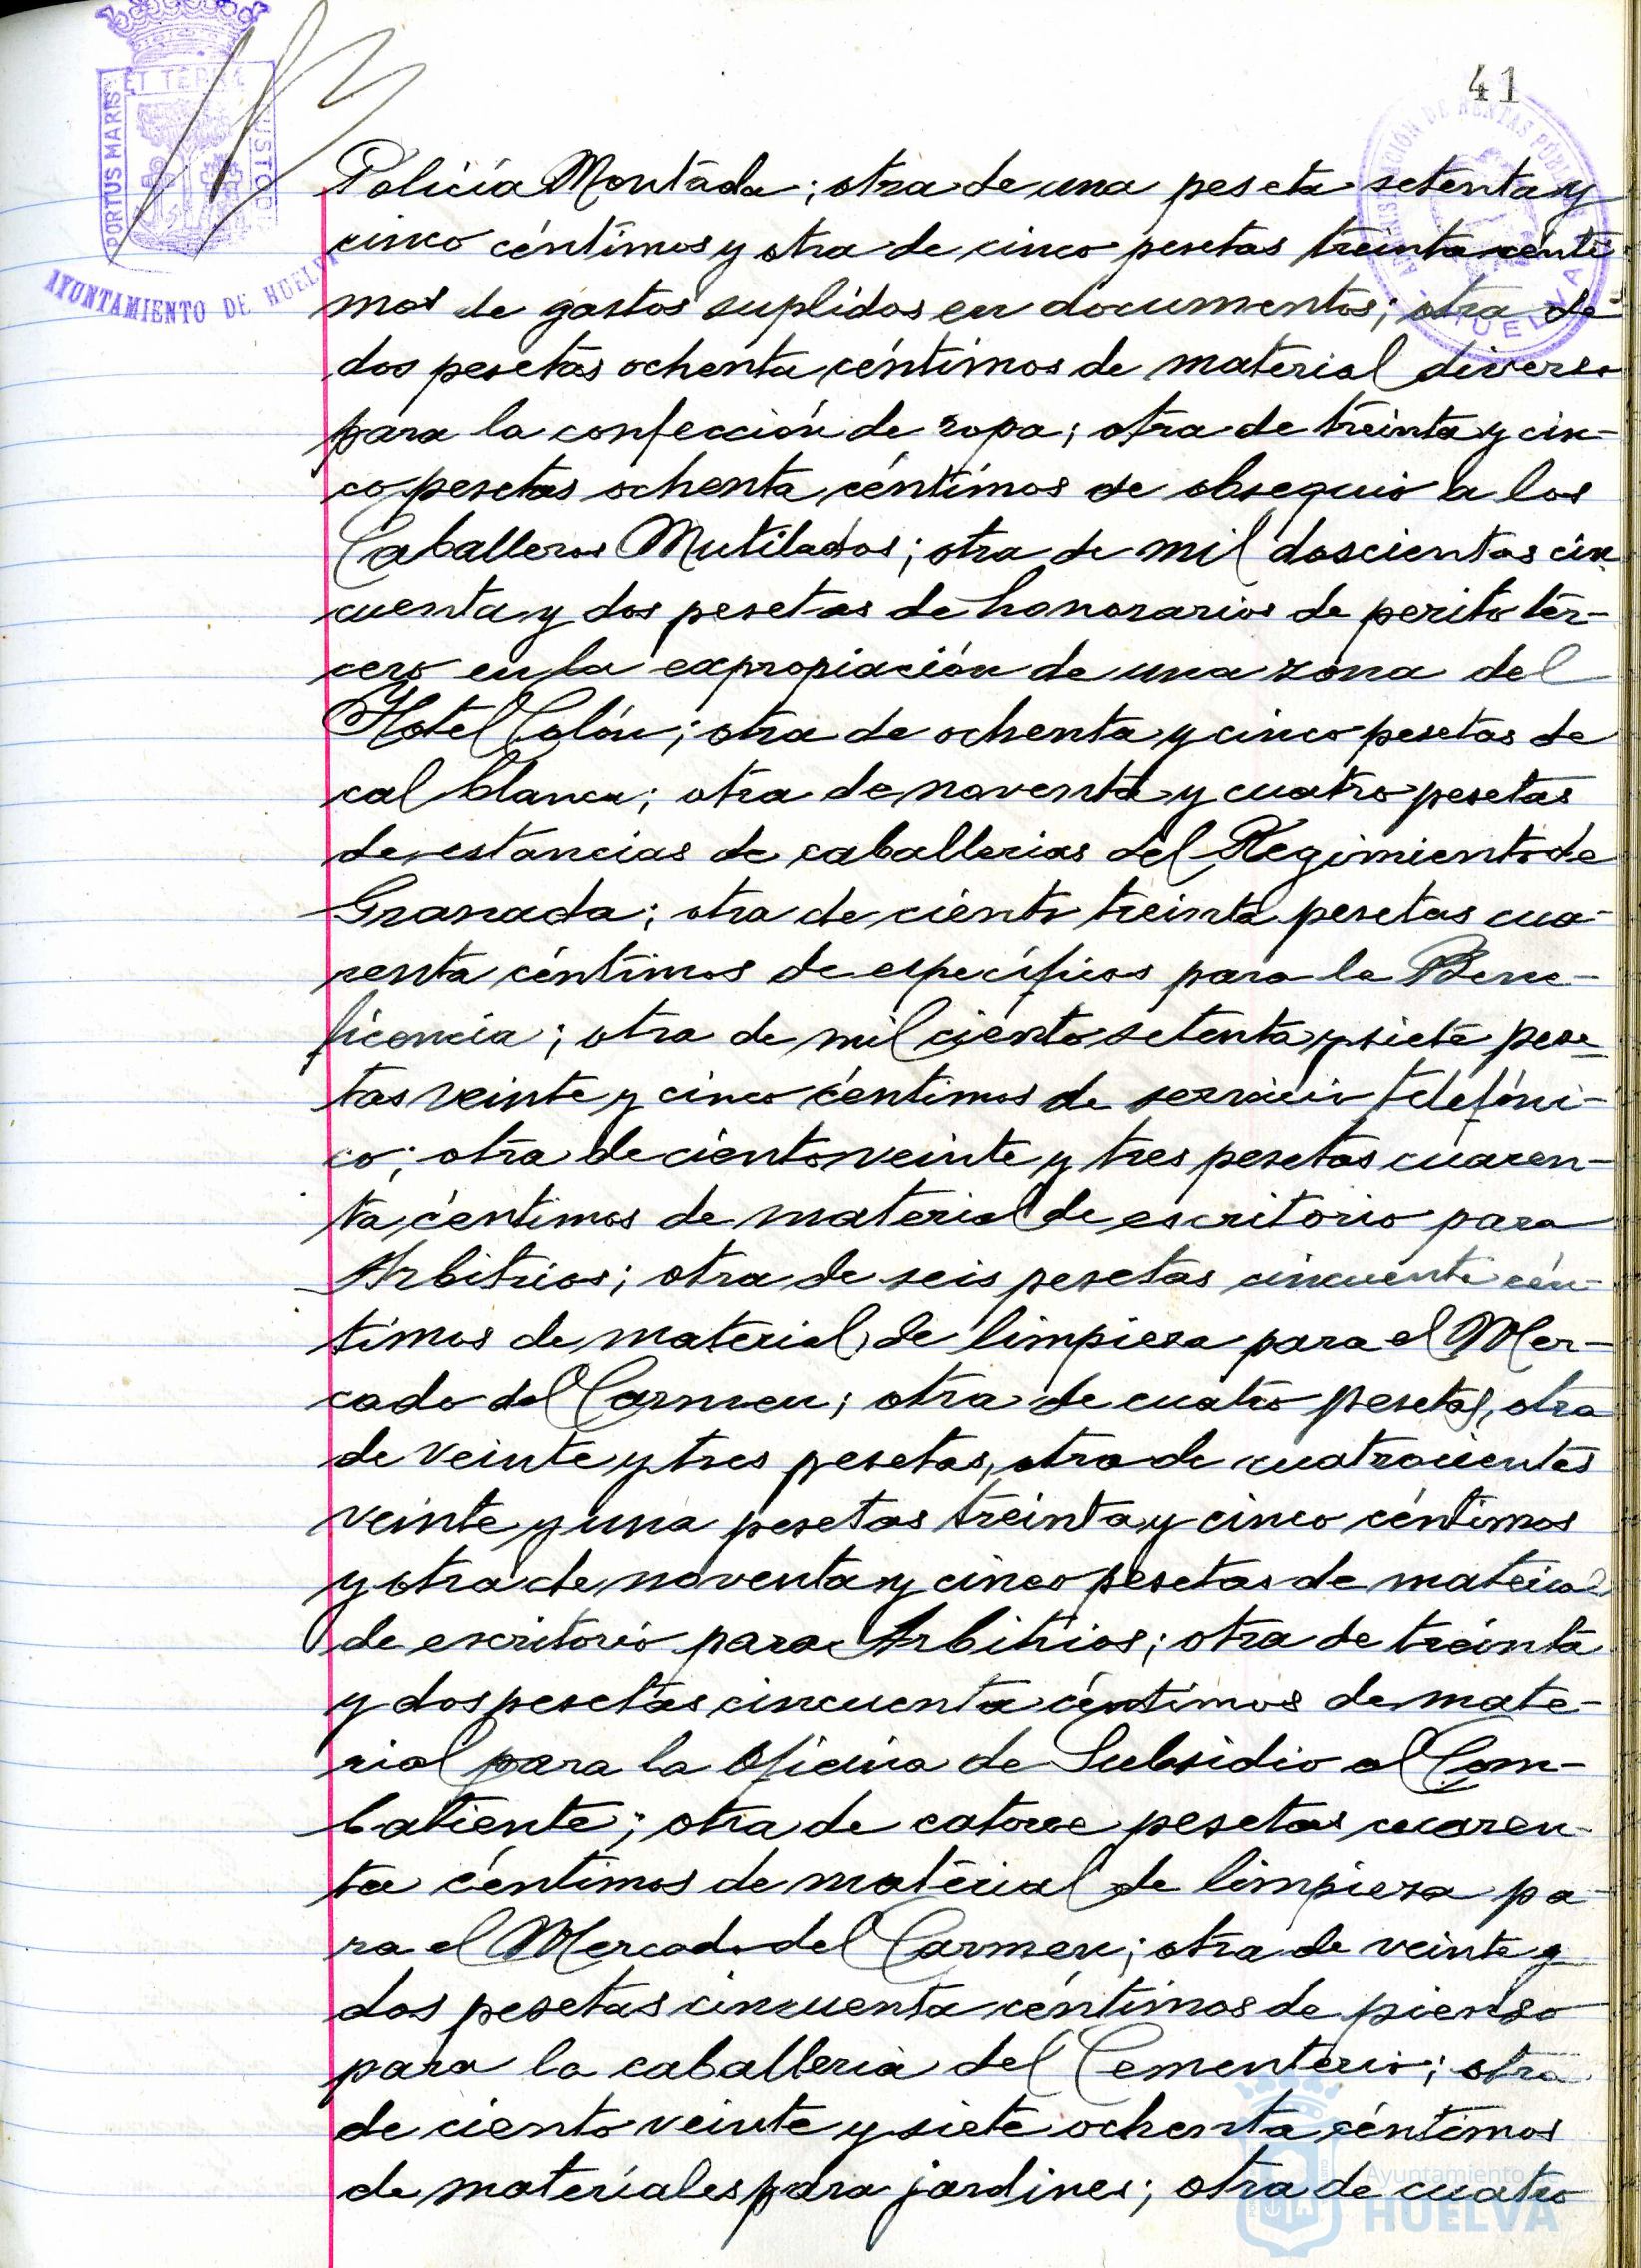 41
PORTUS MARIS ET TERRE CUSTODIA
AYUNTAMIENTO DE HUELVA
Policía Montada; otra de una peseta setenta y
cinco céntimos y otra de cinco pesetas treinta cénti-
mos de gastos suplidos en documentos; otra de
dos pesetas ochenta céntimos de material diverso
para la confección de ropa; otra de treinta y cin-
co pesetas ochenta céntimos de obsequio a los
Caballeros Mutilados; otra de mil doscientas cin
cuenta y dos pesetas de honorarios de perito ter-
cero en la expropiación de una zona del
Hotel Colón; otra de ochenta y cinco pesetas de
cal blanca; otra de noventa y cuatro pesetas
de estancias de caballerias del Regimiento de
Granada; otra de ciento treinta pesetas cua-
renta céntimos de específicos para la Bene-
ficencia; otra de mil ciento setenta y siete pese-
tas veinte y cinco céntimos de servicio telefóni-
co; otra de ciento veinte y tres pesetas cuaren-
ta céntimos de material de escritorio para
Arbitrios; otra de seis pesetas cincuenta cén-
timos de material de limpieza para el Mer-
cado del Carmen; otra de cuatro pesetas, otra
de veinte y tres pesetas, otra de cuatrocientas
veinte y una pesetas treinta y cinco céntimos
y otra de noventa y cinco pesetas de material
de escritorio para Arbitrios; otra de treinta
y dos pesetas cincuenta céntimos de mate-
rial para la Oficina de Subsidio al Com-
batiente; otra de catorce pesetas cuaren-
ta céntimos de material de limpieza pa-
ra el Mercado del Carmen; otra de veinte y
dos pesetas cincuenta céntimos de pienso
para la caballeria del Cementerio; otra
de ciento veinte y siete ochenta céntimos
de materiales para jardines; otra de cuatro
Ayuntamiento de
HUELVA